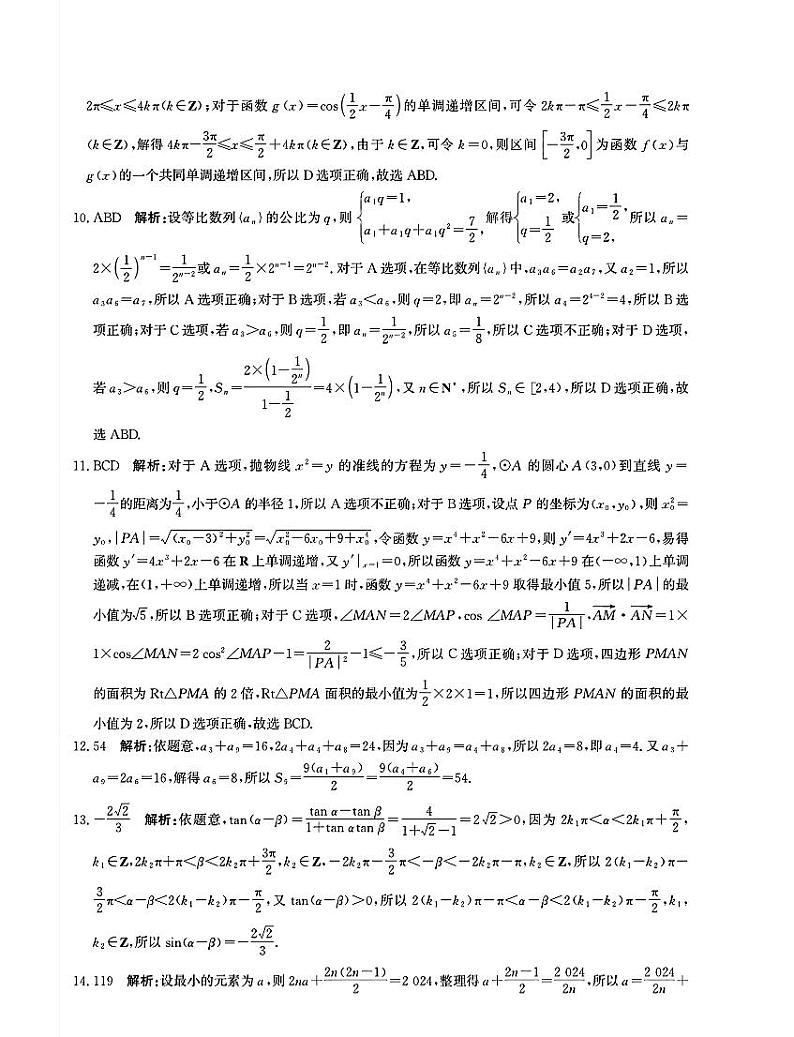 2π≤x≤4kπ(k∈Z);对于函数 g(x)=cos(1/2 x-π/4)的单调递增区间,可令 2kπ-π≤1/2 x-π/4≤2kπ
(k∈Z),解得 4kπ-3π/2≤x≤π/2+4kπ(k∈Z),由于 k∈Z,可令 k=0,则区间[-3π/2,0]为函数 f(x)与
g(x)的一个共同单调递增区间,所以 D 选项正确,故选 ABD.
10. ABD 解析:设等比数列{aₙ}的公比为 q,则{a₁q=1, a₁+a₁q+a₁q²=7/2,解得{a₁=2, q=1/2 或{a₁=1/2, q=2,所以 aₙ=
2×(1/2)ⁿ⁻¹=1/2ⁿ⁻²或 aₙ=1/2×2ⁿ⁻¹=2ⁿ⁻².对于 A 选项,在等比数列{aₙ}中,a₃a₆=a₂a₇,又 a₂=1,所以
a₃a₆=a₇,所以 A 选项正确;对于 B 选项,若 a₃<a₆,则 q=2,即 aₙ=2ⁿ⁻²,所以 a₄=2⁴⁻²=4,所以 B 选
项正确;对于 C 选项,若 a₃>a₆,则 q=1/2,即 aₙ=1/2ⁿ⁻²,所以 a₅=1/8,所以 C 选项不正确;对于 D 选项,
若 a₃>a₆,则 q=1/2,Sₙ=2×(1-1/2ⁿ)/(1-1/2)=4×(1-1/2ⁿ),又 n∈N*,所以 Sₙ∈[2,4),所以 D 选项正确,故
选 ABD.
11. BCD 解析:对于 A 选项,抛物线 x²=y 的准线的方程为 y=-1/4,⊙A 的圆心 A(3,0)到直线 y=
-1/4的距离为1/4,小于⊙A 的半径 1,所以 A 选项不正确;对于 B 选项,设点 P 的坐标为(x₀,y₀),则 x₀²=
y₀,|PA|=√((x₀-3)²+y₀²)=√(x₀²-6x₀+9+x₀⁴),令函数 y=x⁴+x²-6x+9,则 y′=4x³+2x-6,易得
函数 y′=4x³+2x-6 在 R 上单调递增,又 y′|ₓ₌₁=0,所以函数 y=x⁴+x²-6x+9 在(-∞,1)上单调
递减,在(1,+∞)上单调递增,所以当 x=1 时,函数 y=x⁴+x²-6x+9 取得最小值 5,所以|PA|的最
小值为√5,所以 B 选项正确;对于 C 选项,∠MAN=2∠MAP,cos ∠MAP=1/|PA|,AM→·AN→=1×
1×cos∠MAN=2 cos²∠MAP-1=2/|PA|²-1≤-3/5,所以 C 选项正确;对于 D 选项,四边形 PMAN
的面积为 Rt△PMA 的 2 倍,Rt△PMA 面积的最小值为1/2×2×1=1,所以四边形 PMAN 的面积的最
小值为 2,所以 D 选项正确,故选 BCD.
12. 54 解析:依题意,a₃+a₉=16,2a₄+a₄+a₈=24,因为 a₃+a₉=a₄+a₈,所以 2a₄=8,即 a₄=4.又 a₃+
a₉=2a₆=16,解得 a₆=8,所以 S₉=9(a₁+a₉)/2=9(a₄+a₆)/2=54.
13. -2√2/3 解析:依题意,tan(α-β)=(tan α-tan β)/(1+tan αtan β)=4/(1+√2-1)=2√2>0,因为 2k₁π<α<2k₁π+π/2,
k₁∈Z,2k₂π+π<β<2k₂π+3π/2,k₂∈Z,-2k₂π-3/2π<-β<-2k₂π-π,k₂∈Z,所以 2(k₁-k₂)π-
3/2π<α-β<2(k₁-k₂)π-π/2,又 tan(α-β)>0,所以 2(k₁-k₂)π-π<α-β<2(k₁-k₂)π-π/2,k₁,
k₂∈Z,所以 sin(α-β)=-2√2/3.
14. 119 解析:设最小的元素为 a,则 2na+2n(2n-1)/2=2 024,整理得 a+(2n-1)/2=2 024/2n,所以 a=2 024/2n+